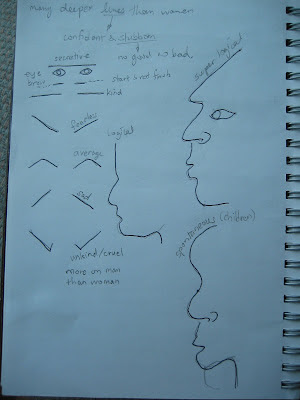 many deeper than women
confident & stubborn
secretive no good no bad,
super logical
eye
brow
start is not
kind
logical
average
sad
spontaneous (children)
unkind/cruel
more on man
than woman